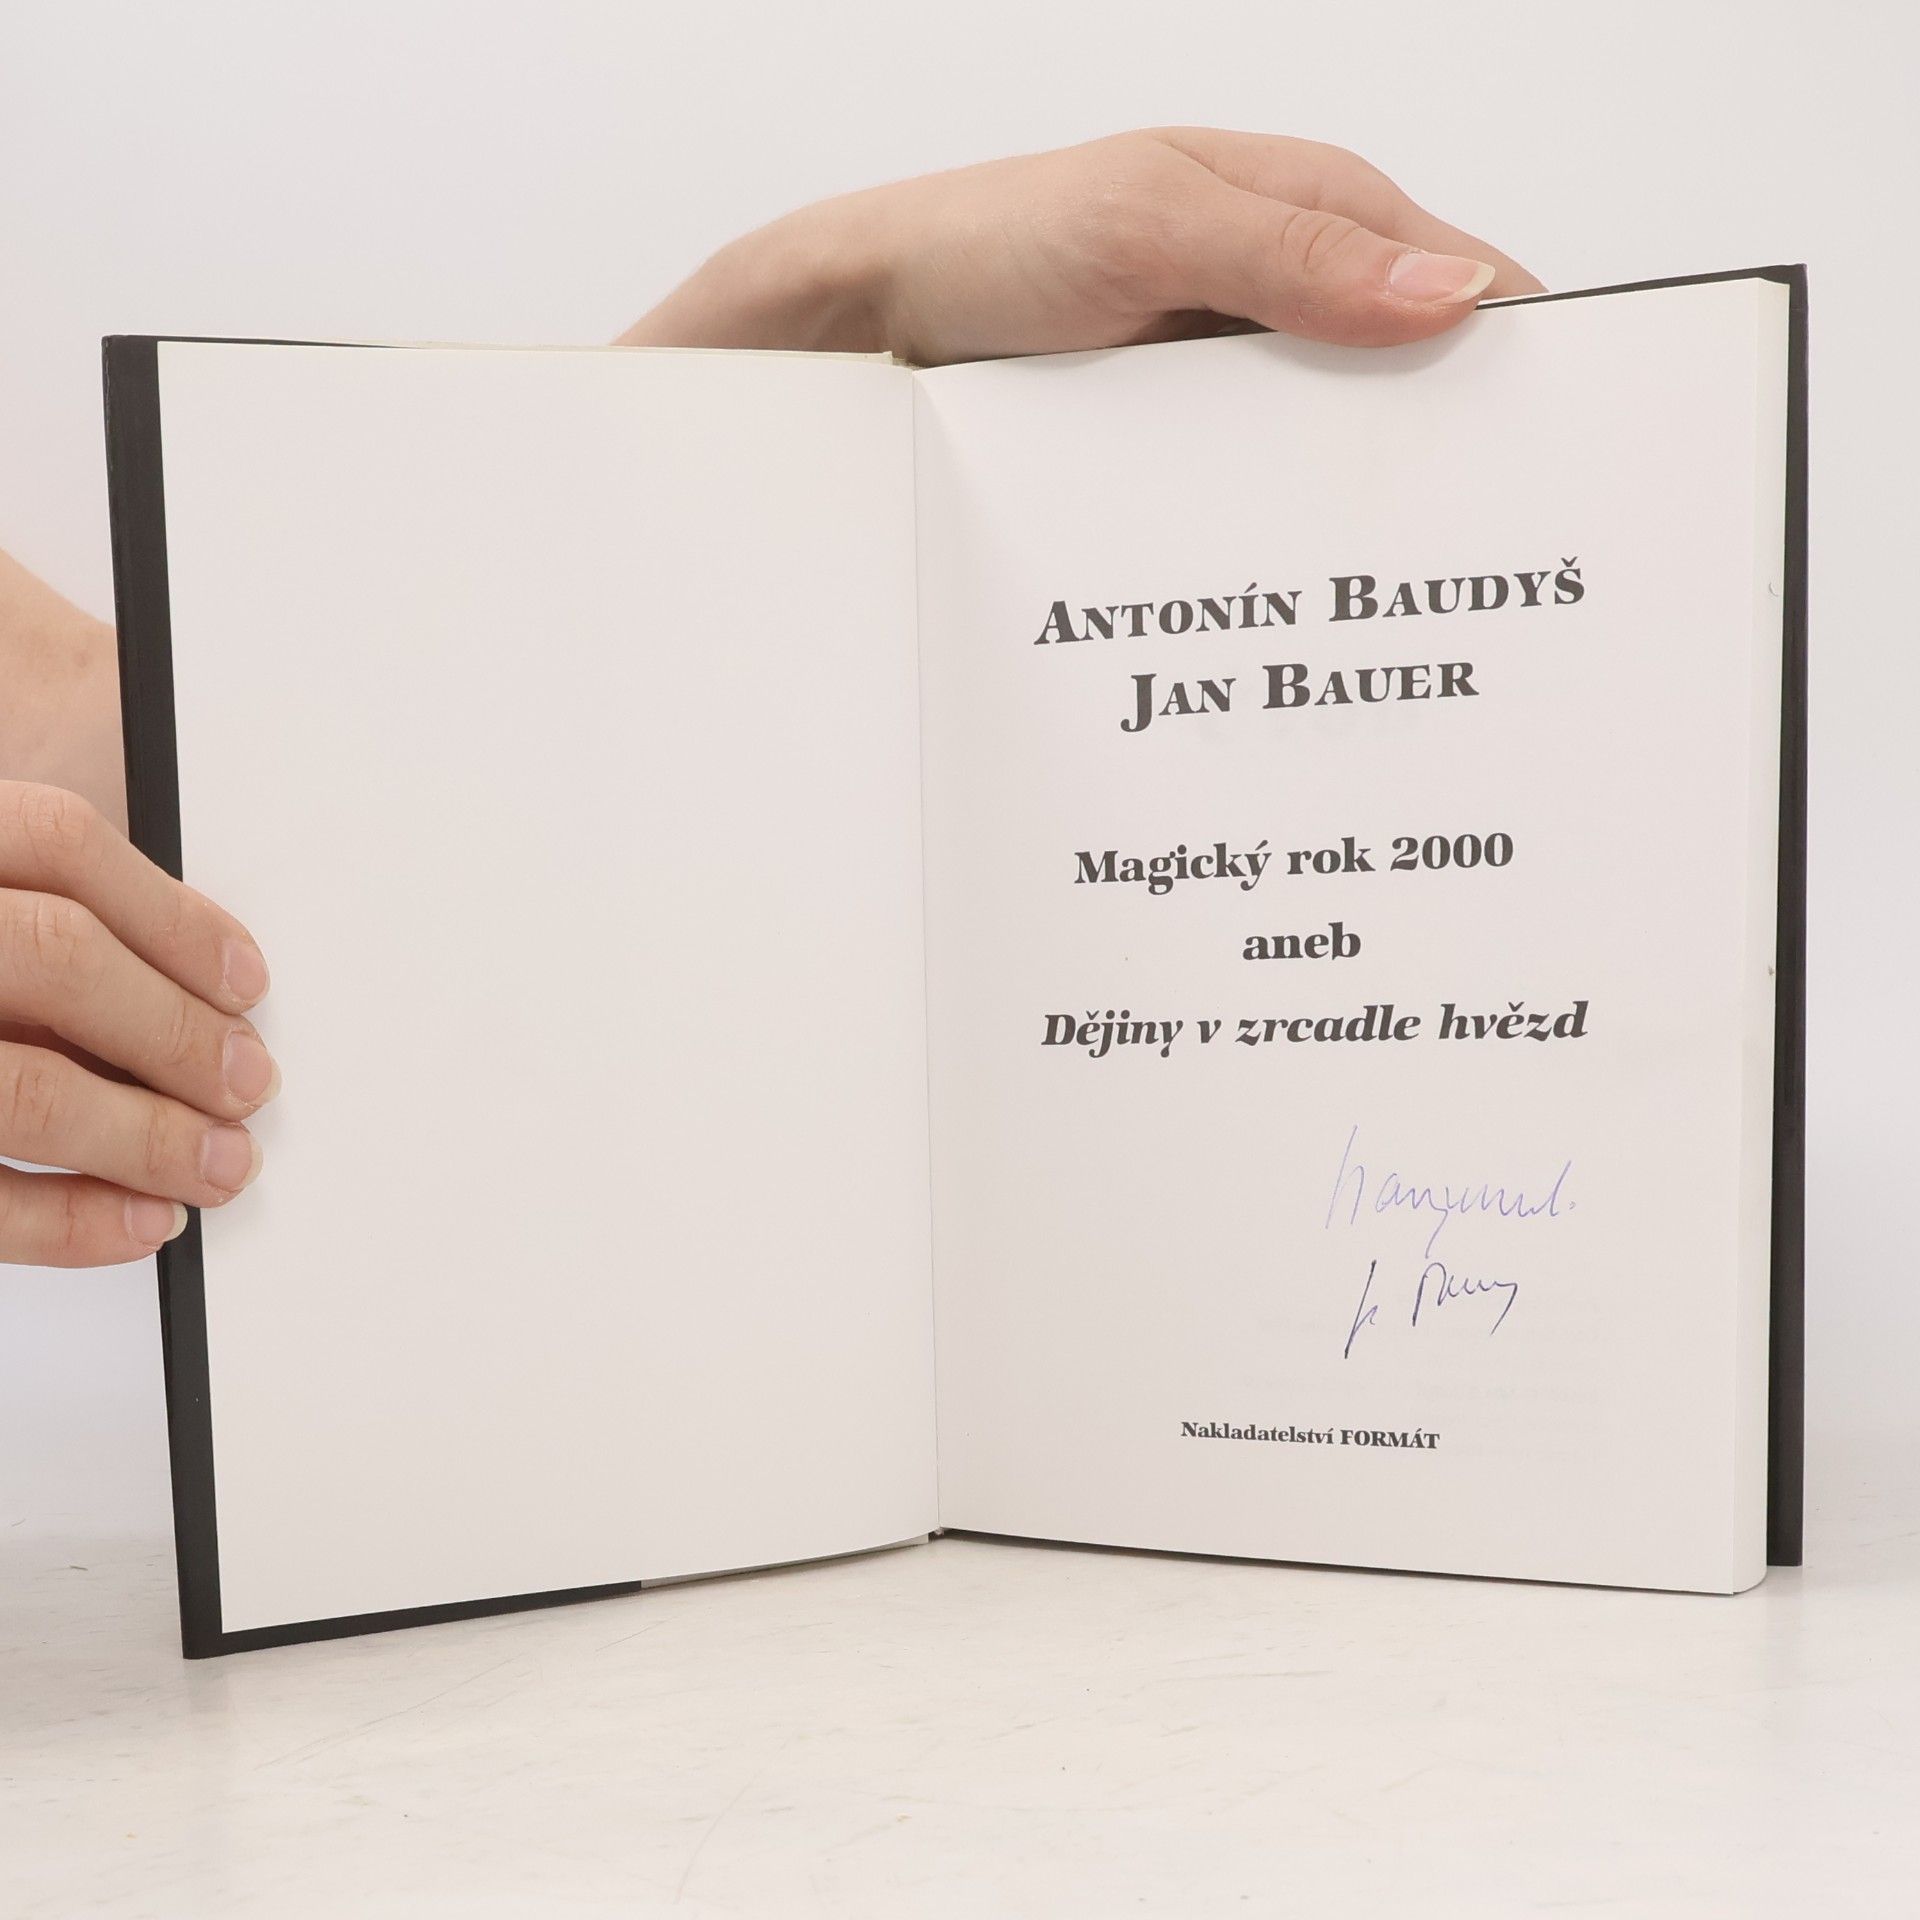 ANTONÍN BAUDYŠ
JAN BAUER
Magický rok 2000
aneb
Dějiny v zrcadle hvězd
Nakladatelství FORMÁT